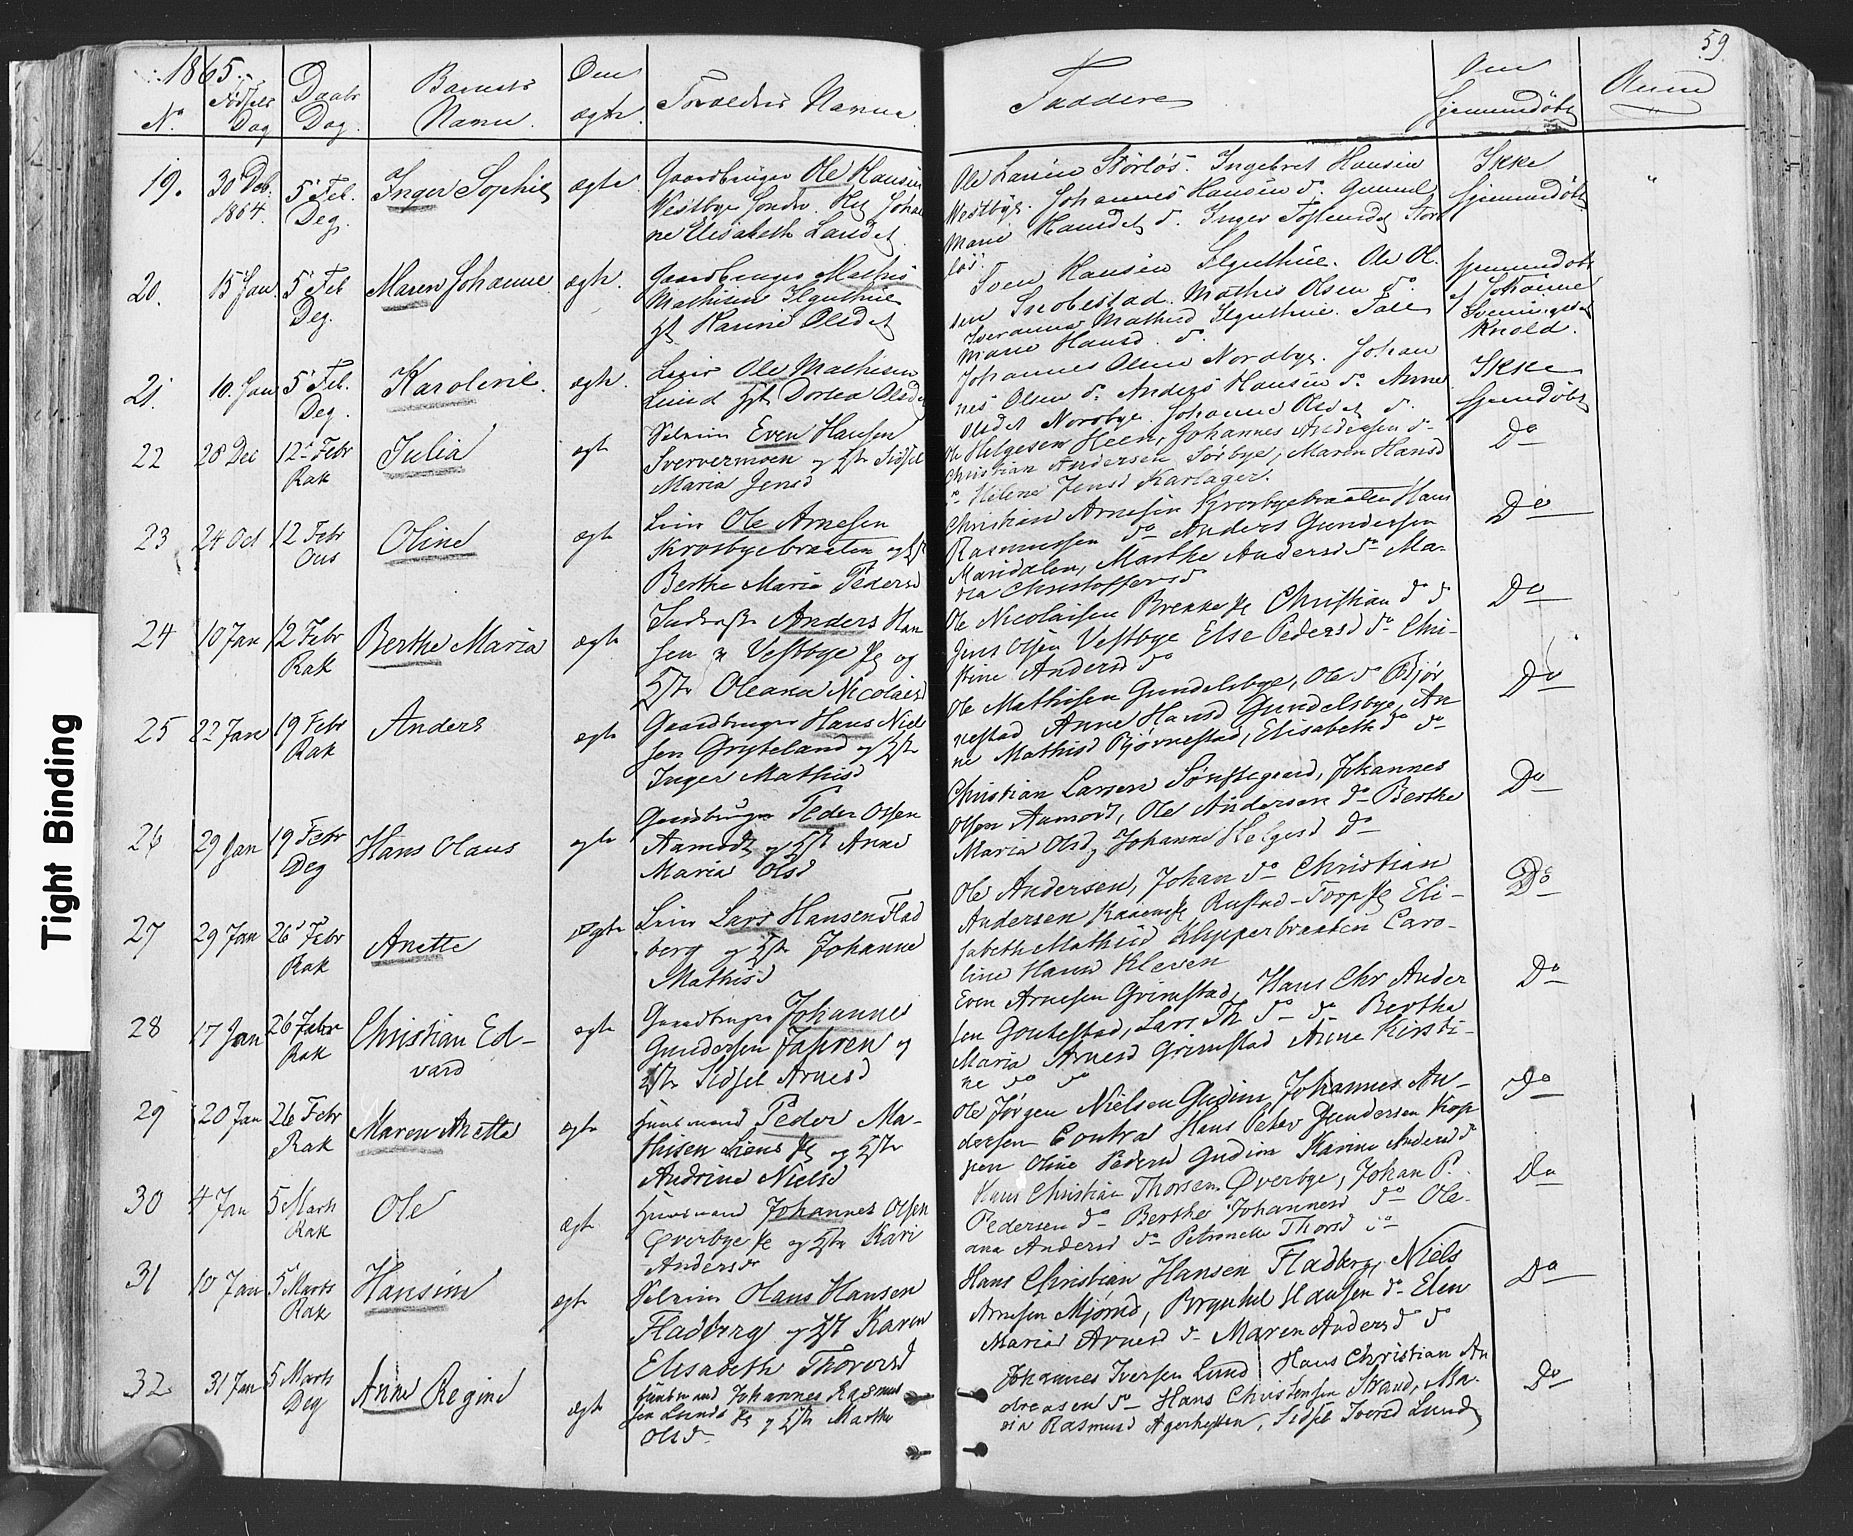 1865.
59
No.
Fødsels Dag
Daabs Dag.
Barnets Navn.
Om ægte.
Forældres Navne.
Faddere
Om Hjemmedøbt
Anm
19.
30 Deb. 1864.
5 Feb. Deg.
Inger Sophie
ægte.
Gaardbruger Ole Hansen
Westbye Søndr. Hst Johan
ne Elisabeth Larsdet.
Ole Larsen Storløs. Ingebret Hansen
Westbye. Johannes Hansen do. Gunnil
Marie Hansdet do. Inger Tostensdet Stor
løs.
Ikke
Hjemmedøbt
"
20.
15 Jan
5 Feb Deg.
Maren Johanne
ægte.
Gaardbruger Mathis
Mathisen
Hst Karine Olsdet
Sven Hansen. Ole Ol
sen Snobestad. Mathis Olsen do.
Marie Hansd. do.
Hjemmedøbt
af Johanne
Knold.
21.
10. Jan
5 Feb. Deg.
Karoline.
ægte.
Leier Ole Mathisen
Lund Hst Dortea Olsdet
Johannes Olsen Nordbye. Johan
nes Olsen do. Anders Hansen do. Anne
Olsdet Nordbye. Johanne Olsdet do.
Ikke
Hjemmedøbt
22
28 Dec
12 Febr Rak
Julia
ægte
Selveier Even Hansen
Sververmoen og Hst Sidsel
Maria Jensd
Ole Helgesen Heen, Johannes Andersen do
Christian Andersen Sørbye, Maren Hansd
do Helene Jensd Karlager.
Do
23
24 Oct
12 Febr Ous
Oline
ægte
Leier Ole Arnesen
Krosbyebraaten og Hst
Berthe Maria Pedersd
Christian Arnesen Krosbyebraaten Hans
Rasmussen do Anders Gundersen
Maridalen, Marthe Andersd do Ma-
ria Christoffersd
Do
24
10 Jan
12 Febr Rak
Berthe Maria
ægte
Inderst Anders Han
sen Vestbye og
Hst Oleana Nicolaisd
Ole Nicolaisen Brekke Christian do do
Jens Olsen Vestbye Else Pedersd do Chri-
stine Andersd do
Do
25
22 Jan
19 Febr Rak
Anders
ægte
Gaardbruger Hans Niel
sen Gryteland og Hst
Inger Mathisd
Ole Mathisen Gundelsbye, Ole do Bjør
nestad Anne Hansd Gundelsbye, An
ne Mathisd Bjørnestad, Elisabeth do do
Do
26
29 Jan
19 Febr Deg
Hans Olaus
ægte
Gaardbruger Peder Olsen
Aamodt og Hst Anne
Maria Olsd
Christian Larsen, Johannes
Olsen Aamodt, Ole Andersen do Berthe
Maria Olsd, Johanne Helgesd do
Do
27
29 Jan
26 Febr Rak
Anette
ægte
Leier Lars Hansen Flad
berg og Hst Johanne
Mathisd
Ole Andersen, Johan do Christian
Andersen Rustad-Torp Eli-
sabeth Mathisd Klopperbraaten Caro-
line Hansd Kleven
Do
28
17 Jan
26 Febr Rak
Christian Ed-
vard
ægte
Gaardbruger Johannes
Gundersen Jahren og
Hst Sidsel Arnesd
Even Arnesen Grimstad, Hans Chr Ander
sen Goutestad, Lars Th do do Berthe
Maria Arnesd Grimstad Anne Kirsti-
ne do do
Do
29
20 Jan
26 Febr Rak
Maren Anette
ægte
Huusmand Peder Ma-
thisen Liens og Hst
Andrine Nielsd
Ole Jørgen Nielsen Gudim, Johannes An-
dersen Contra Hans Peter Gundersen Kop
pen Oline Pedersd Gudim Karine Andersd do
Do
30
4 Jan
5 Marts Rak
Ole
ægte
Huusmand Johannes Olsen
Øverbye og Hst Kari
Andersd
Hans Christian Thorsen Øverbye, Johan P.
Pedersen do Berthe Johannesd do Ole-
ana Andersd do Petronelle Thorsd do
Do
31
10 Jan
5 Marts Rak
Hansine
ægte
Selveier Hans Hansen
Fladberg og Hst Karen
Elisabeth Thoresd
Hans Christian Hansen Fladberg, Niels
Arnesen Mjørud, Bryhel Hansen do Elen
Maria Arnesd do Maren Andersd do
Do
32
31 Jan
5 Marts Deg
Anne Regine
ægte
Huusmand Johannes Rasmus
sen Lunds og Hst Marthe
Olsd
Johannes Iversen Lund, Hans Christian An
dreasen do Hans Christensen Strand, Ma-
ria Rasmusd, Sidsel Iversd Lund
Do
Tight Binding